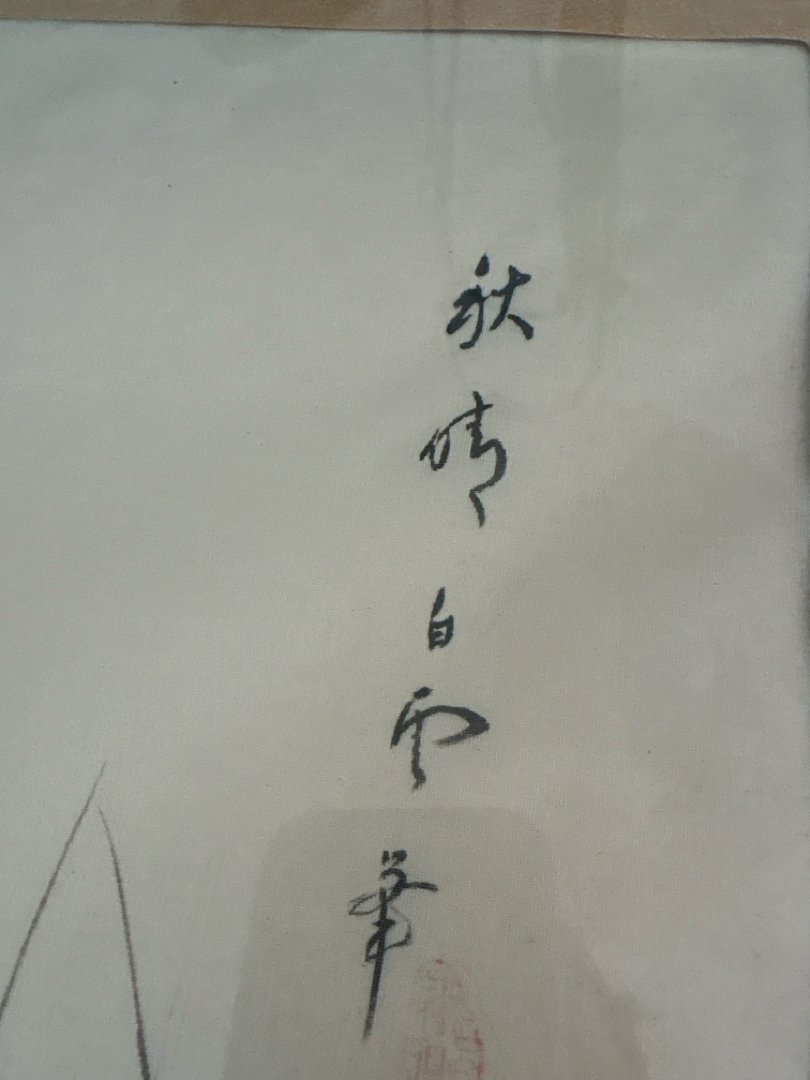 秋晴白雲筆